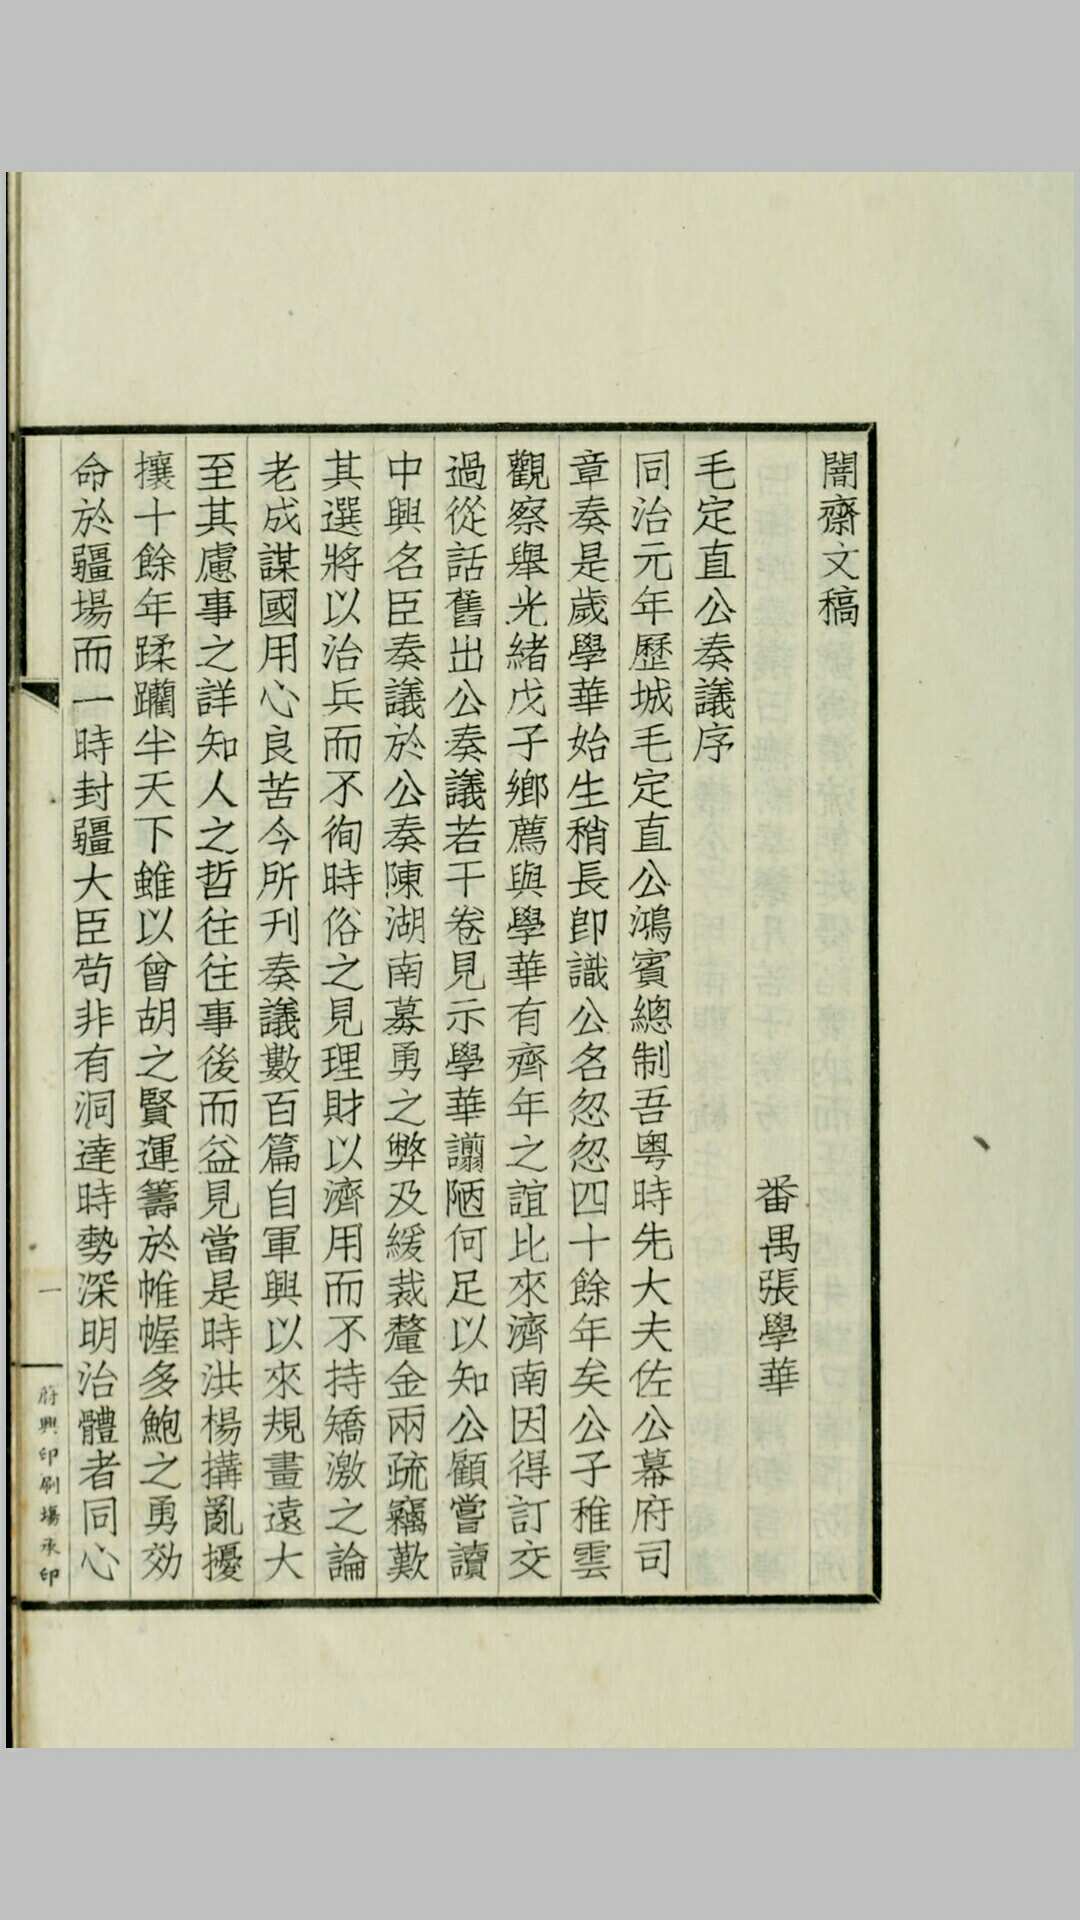 闇齋文稿
番禺張學華
毛定直公奏議序
同治元年歷城毛定直公鴻賓總制吾粤時先大夫佐公幕府司
章奏是歲學華始生稍長卽識公名忽忽四十餘年矣公子稚雲
觀察舉光緒戊子鄉薦與學華有齊年之誼比來濟南因得訂交
過從話舊出公奏議若干卷見示學華譾陋何足以知公顧嘗讀
中興名臣奏議於公奏陳湖南募勇之弊及緩裁釐金兩疏竊歎
其選將以治兵而不徇時俗之見理財以濟用而不持矯激之論
老成謀國用心良苦今所刊奏議數百篇自軍興以來規畫遠大
至其慮事之詳知人之哲往往事後而益見當是時洪楊搆亂擾
攘十餘年蹂躪半天下雖以曾胡之賢運籌於帷幄多鮑之勇効
命於疆場而一時封疆大臣苟非有洞達時勢深明治體者同心
一
蔚興印刷場承印